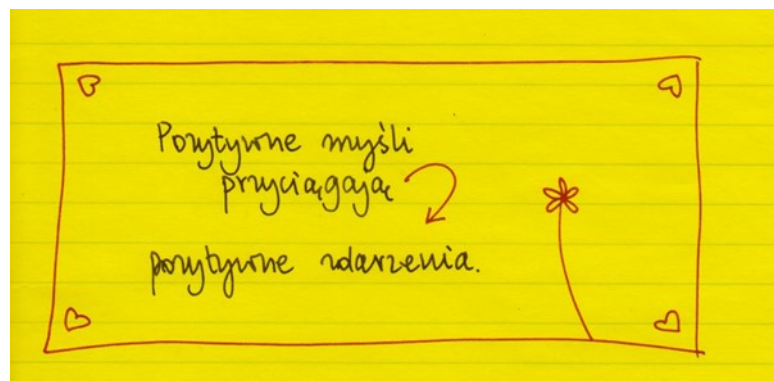 Pozytywne myśli
przyciągają
pozytywne zdarzenia.